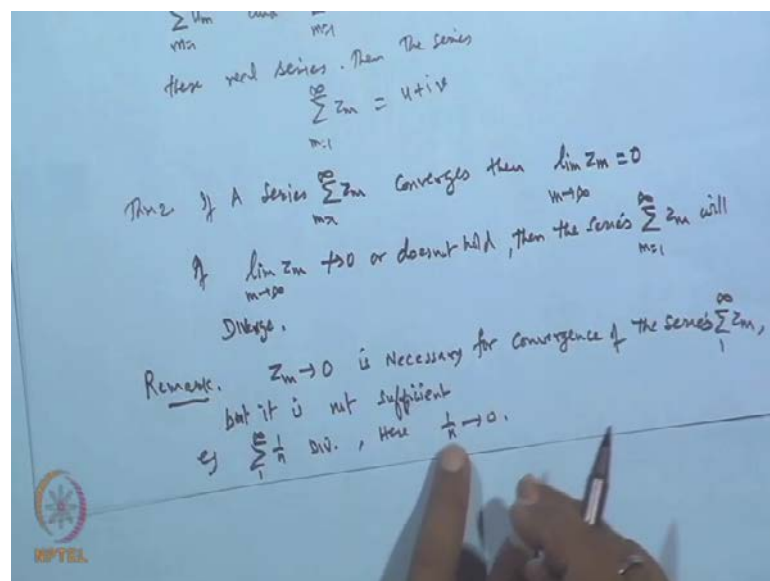 ∞ ∑ u_m and ∑
m=1 m=1
these real series. Then the series
∞ ∑ m=1 z_m = u+iv
Thm2 If A Series ∞ ∑ m=1 z_m Converges then lim m→∞ z_m = 0
If lim m→∞ z_m ↛0 or doesnot hold, then the series ∞ ∑ m=1 z_m will
Diverge.
Remark. z_m→0 is necessary for convergence of the series ∞ ∑ 1 z_m,
but it is not sufficient
eg ∞ ∑ 1 1/n DIV. , Here 1/n →0.
NPTEL